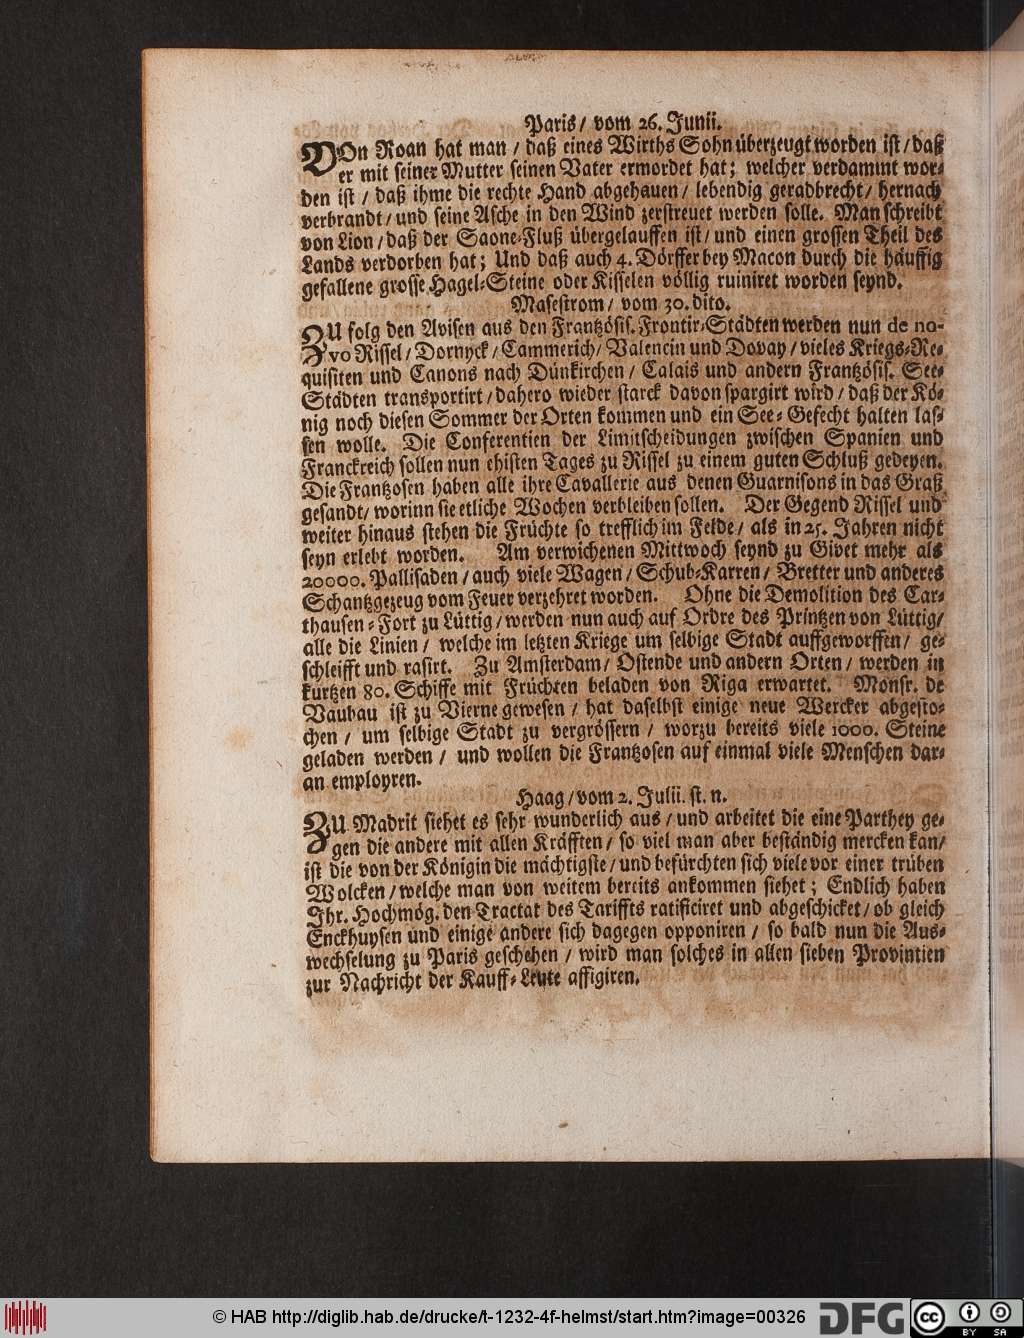 Paris / vom 26. Junii.
VOn Roan hat man / daß eines Wirths Sohn überzeugt worden ist / daß
er mit seiner Mutter seinen Vater ermordet hat; welcher verdammt wor-
den ist / daß ihme die rechte Hand abgehauen / lebendig geradbrecht / hernach
verbrandt / und seine Asche in den Wind zerstreuet werden solle. Man schreibt
von Lion / daß der Saone-Fluß übergelauffen ist / und einen grossen Theil des
Lands verdorben hat; Und daß auch 4. Dörffer bey Macon durch die häuffig
gefallene grosse Hagel-Steine oder Kisselen völlig ruiniret worden seynd.
Masestrom / vom 30. dito.
ZU folg den Avisen aus den Frantzösis. Frontir-Städten werden nun de no-
vo Rissel / Dornyck / Cammerich / Valencin und Dovay / vieles Kriegs-Re-
quisiten und Canons nach Dünkirchen / Calais und andern Frantzösis. See-
Städten transportirt / dahero wieder starck davon spargirt wird / daß der Kö-
nig noch diesen Sommer der Orten kommen und ein See-Gefecht halten las-
sen wolle. Die Conferentien der Limitscheidungen zwischen Spanien und
Franckreich sollen nun ehisten Tages zu Rissel zu einem guten Schluß gedeyen.
Die Frantzosen haben alle ihre Cavallerie aus denen Guarnisons in das Graß
gesandt / worinn sie etliche Wochen verbleiben sollen. Der Gegend Rissel und
weiter hinaus stehen die Früchte so trefflich im Felde / als in 25. Jahren nicht
seyn erlebt worden. Am verwichenen Mittwoch seynd zu Givet mehr als
20000. Pallisaden / auch viele Wagen / Schub-Karren / Bretter und anderes
Schantzgezeug vom Feuer verzehret worden. Ohne die Demolition des Car-
thausen-Fort zu Lüttig / werden nun auch auf Ordre des Printzen von Lüttig /
alle die Linien / welche im letzten Kriege um selbige Stadt auffgeworffen / ge-
schleifft und rasirt. Zu Amsterdam / Ostende und andern Orten / werden in
kurtzen 80. Schiffe mit Früchten beladen von Riga erwartet. Monsr. de
Vaubau ist zu Vierne gewesen / hat daselbst einige neue Wercker abgesto-
chen / um selbige Stadt zu vergrössern / worzu bereits viele 1000. Steine
geladen werden / und wollen die Frantzosen auf einmal viele Menschen dar-
an employren.
Haag / vom 2. Julii. st. n.
ZU Madrit siehet es sehr wunderlich aus / und arbeitet die eine Parthey ge-
gen die andere mit allen Kräfften / so viel man aber beständig mercken kan /
ist die von der Königin die mächtigste / und befürchten sich viele vor einer trüben
Wolcken / welche man von weitem bereits ankommen siehet; Endlich haben
Ihr. Hochmög. den Tractat des Tariffts ratificiret und abgeschicket / ob gleich
Enckhuysen und einige andere sich dagegen opponiren / so bald nun die Aus-
wechselung zu Paris geschehen / wird man solches in allen sieben Provintien
zur Nachricht der Kauff-Leute affigiren.
© HAB http://diglib.hab.de/drucke/t-1232-4f-helmst/start.htm?image=00326
DFG
cc BY SA